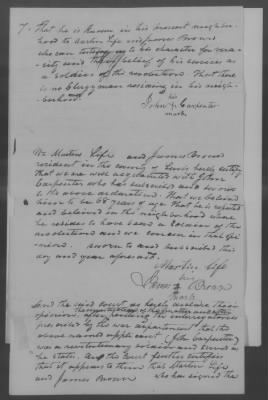 7. That he is Known in his present neighbor-
hood to Martin Life and James Brown
who can testify as to his character for vera-
city and their belief of his services as
a soldier of the revolution That there
is no Clergyman residing in his neigh-
borhood
his
John X Carpenter
mark
We Martin Life and James Brown
resident in the county of Lewis hereby certify
that we are well acquainted with John
Carpenter who has subscribed and sworn
to the above declaration. That we believe
him to be 68 years of age. That he is reputed
and believed in the neighborhood where
he resides to have been a soldier of the
revolution and we concur in that opi-
nion. sworn to and subscribed the
day and year aforesaid.
Martin Life
his
James X Brown
mark
And the said court do hereby declare their
opinion after the investigation of the matter and after
putting the interrogatories
prescribed by the war department that the
above named applicant John Carpenter
was a revolutionary soldier and served as
he states. And the Court further certifies
that it appears to them that Martin Life
and James Brown who has signed the